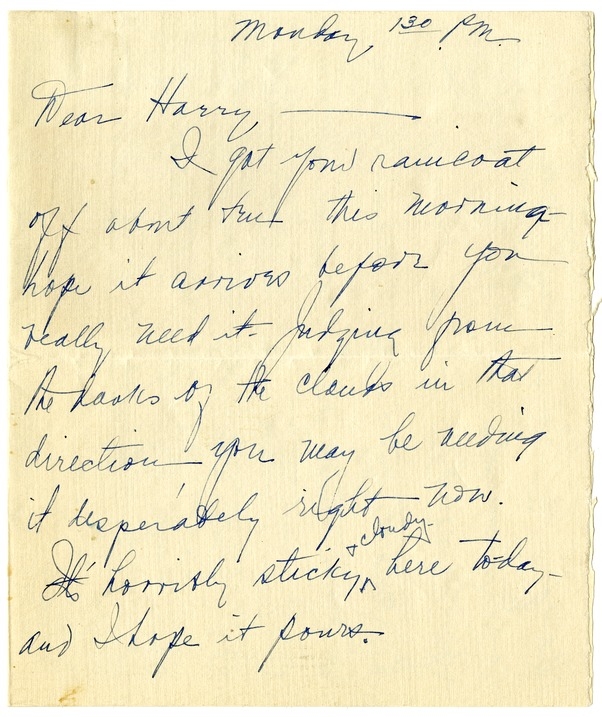 Monday 1³⁰ P.M.
Dear Harry —
I got your raincoat
off about ten this morning-
hope it arrives before you
really need it- Judging from
the looks of the clouds in that
direction you may be needing
it desperately right now.
It's horribly sticky & cloudy- here to-day-
and I hope it pours.